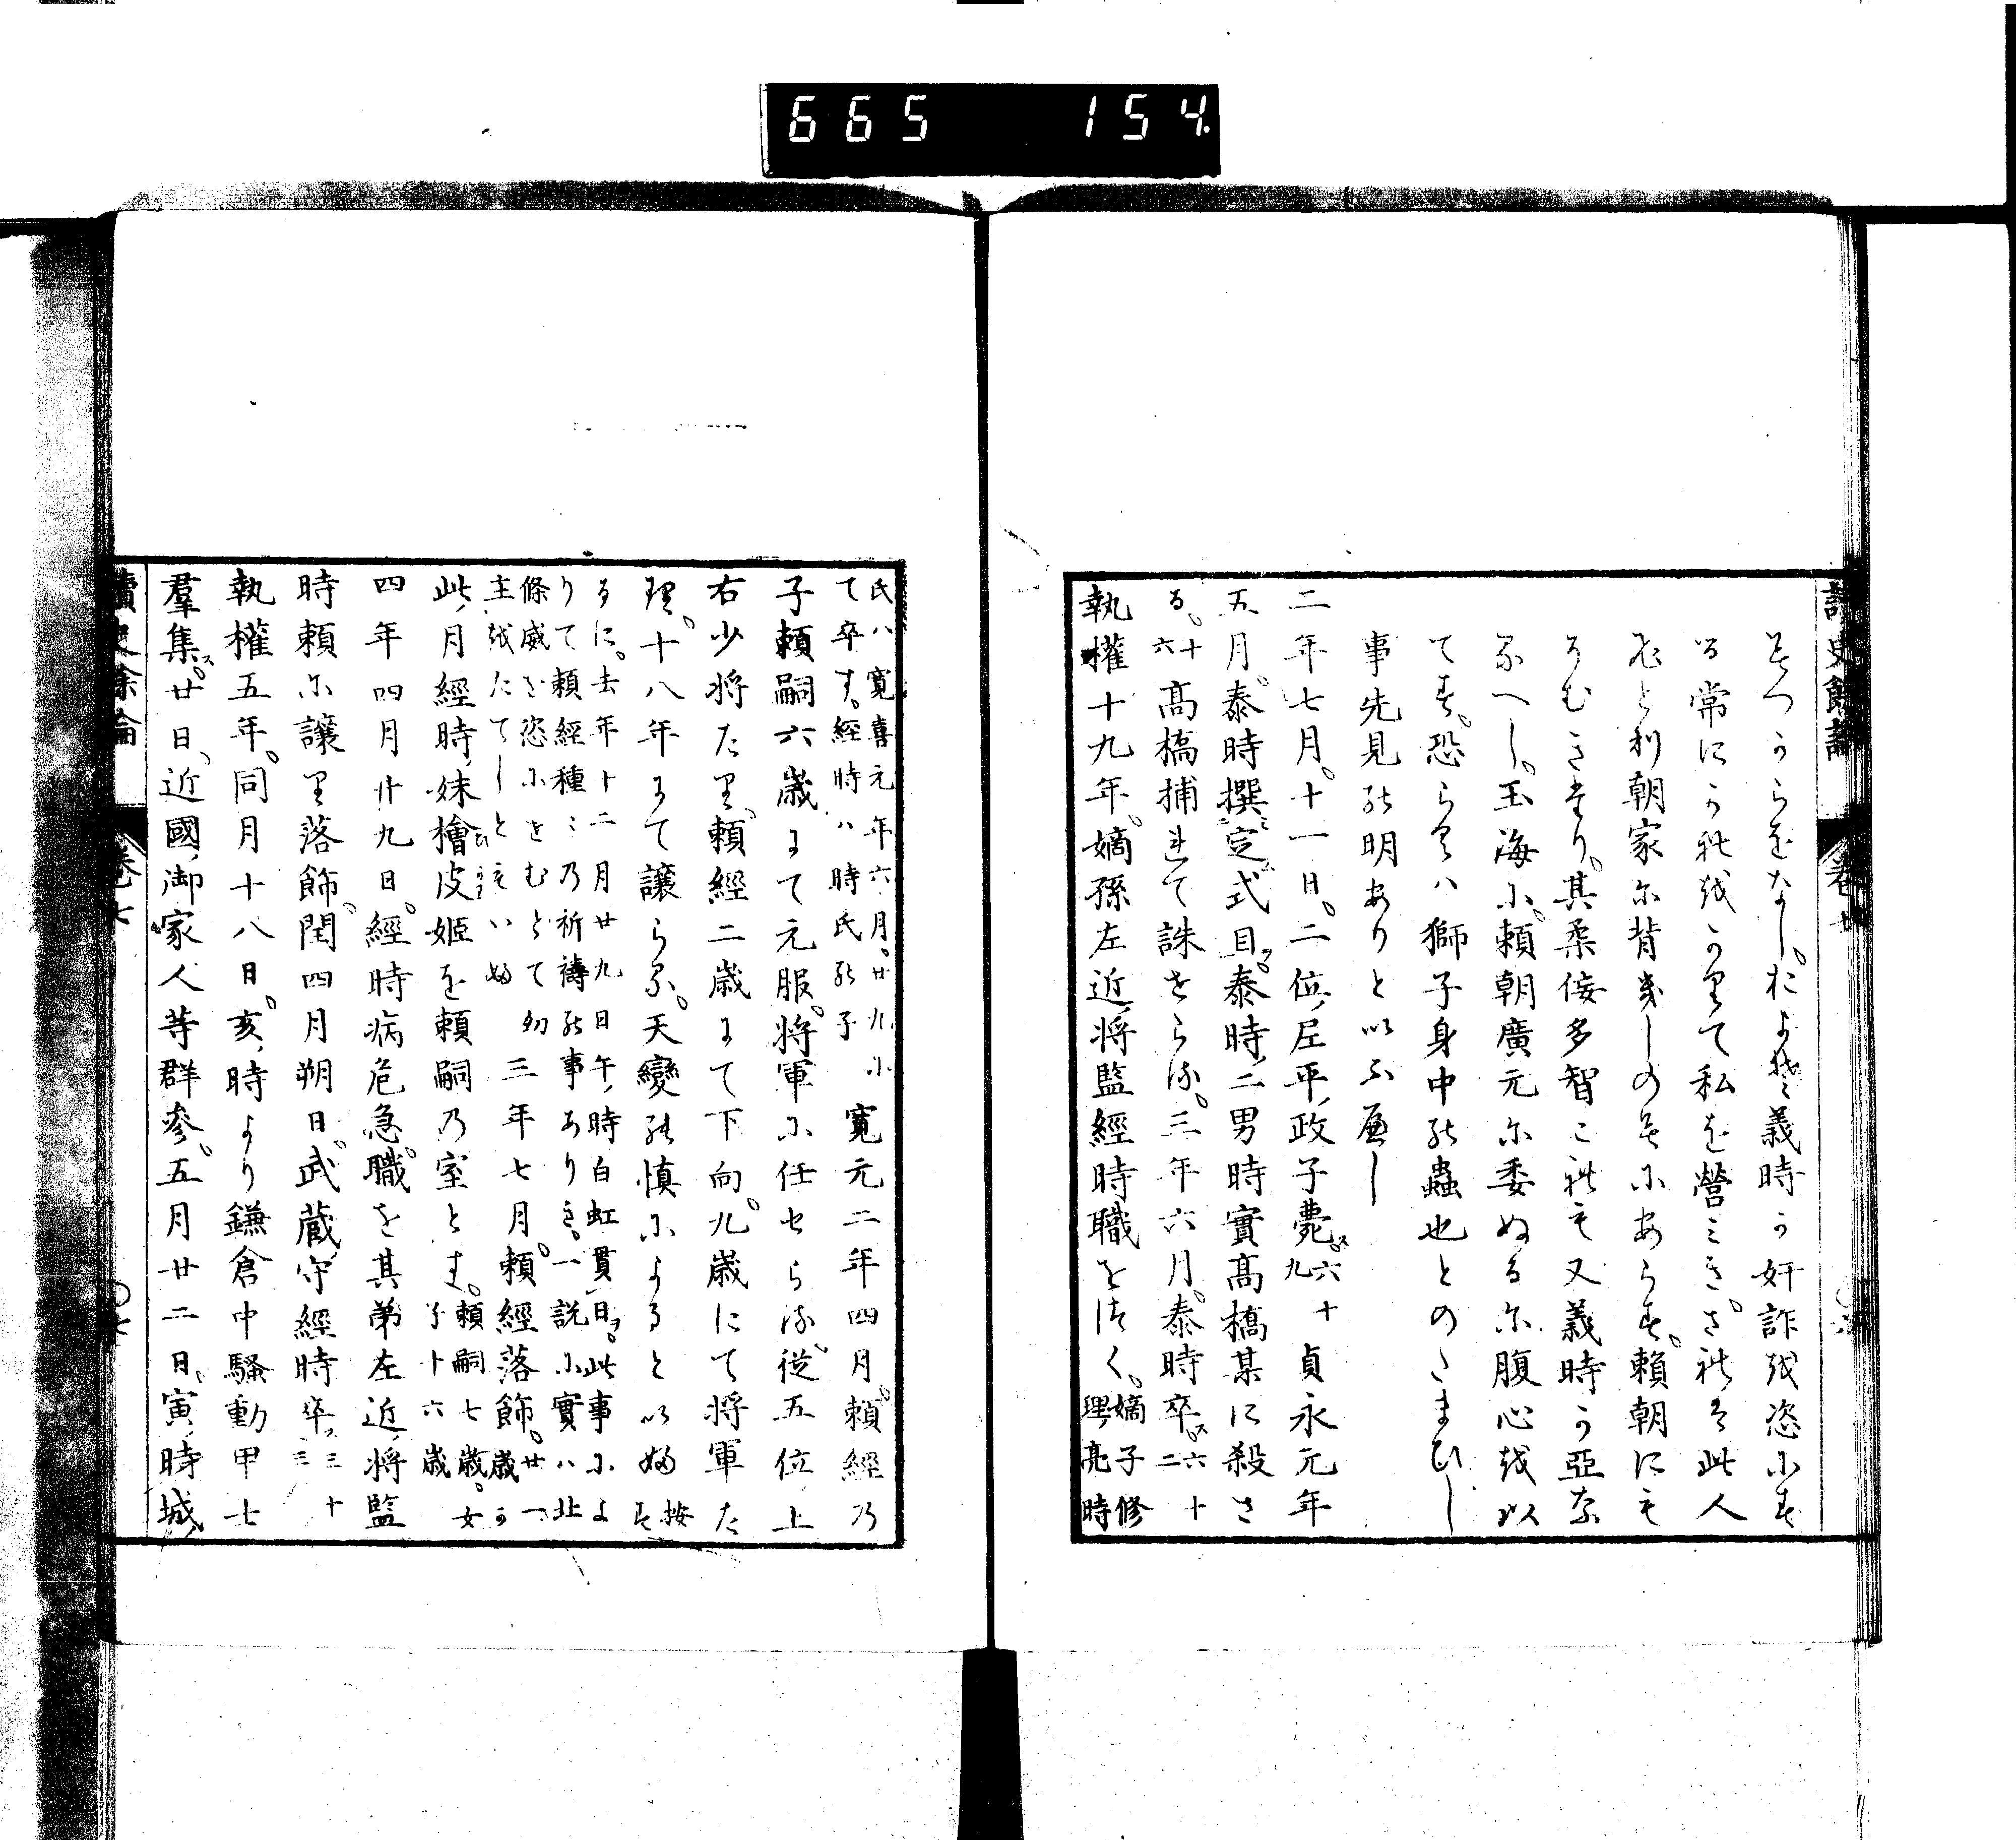 665 154.
讀史餘論 卷七
てつからをなし。およそ義時か奸詐を恣にす
る常にかれをかりて私を營みき。されは此人
たゝ利朝家に背きしのみにあらす。頼朝にも
そむきたり。其柔佞多智これも又義時か亞な
るへし。玉海に頼朝廣元に委ぬるに腹心を以
てす。恐らくハ獅子身中の蟲也とのたまひし
事先見の明ありと以ふへし
二年七月。十一日。二位ノ尼平ノ政子薨ス。六十九 貞永元年
五月。泰時撰定ム式目ヲ。泰時ノ二男時實高橋某に殺さ
る。十六 高橋捕はれて誅せらる。三年六月。泰時卒ス。六十二
執權十九年。嫡孫左近ノ將監經時職をつく。嫡子修理ノ亮時
氏ハ寛喜元年六月。廿九に
て卒す。經時ハ時氏の子 寛元二年四月。頼經の
子頼嗣六歳にて元服。將軍に任せらる。從五位ノ上
右少將たり。頼經二歳にて下向。九歳にて將軍た
り。十八年にて讓らる。天變の慎によると以ふ 按す
るに。去年十二月廿九日午ノ時白虹貫ク日ヲ。此事によ
りて頼經種々の祈禱の事ありき。一説に實ハ北
條威を恣にせむとて幼
主をたてしともいふ 三年七月。頼經落飾。廿一歳か
此ノ月經時ノ妹檜皮姫を頼嗣の室とす。頼嗣七歳。女子十六歳
四年四月廿九日。經時病危急。職を其弟左近ノ將監
時頼に讓り落飾。閏四月朔日。武藏ノ守經時卒ス。三十三
執權五年。同月十八日。亥ノ時より鎌倉中騷動甲士
羣集ス。廿日。近國ノ御家人等群參。五月廿二日。寅ノ時城ノ
讀史餘論 卷七